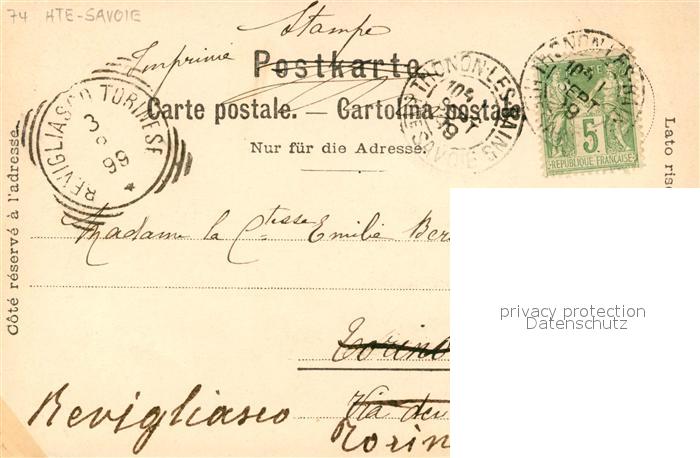 74 HTE-SAVOIE
Stampe
Imprimé
Postkarte
Carte postale. — Cartolina postale.
Nur für die Adresse.
THONON-LES-BAINS
HTE SAVOIE
SEPT
THONON-LES-BAINS
SEPT
5
REPUBLIQUE FRANÇAISE
REVIGLIASCO TORINESE
Côté réservé à l'adresse.
Lato rise
Madame la Ctesse Emilie Ber
Torino
Via
Revigliasco
Torin
privacy protection
Datenschutz